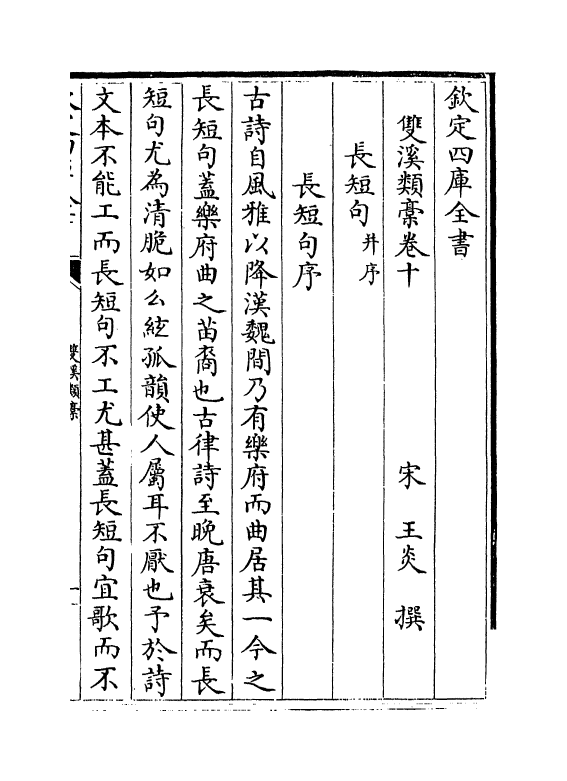 欽定四庫全書
雙溪類藁卷十
宋 王炎 撰
長短句 并序
長短句序
古詩自風雅以降漢魏間乃有樂府而曲居其一今之
長短句蓋樂府曲之苗裔也古律詩至晚唐衰矣而長
短句尤為清脆如么絃孤韻使人屬耳不厭也予於詩
文本不能工而長短句不工尤甚蓋長短句宜歌而不
雙溪類藁
一